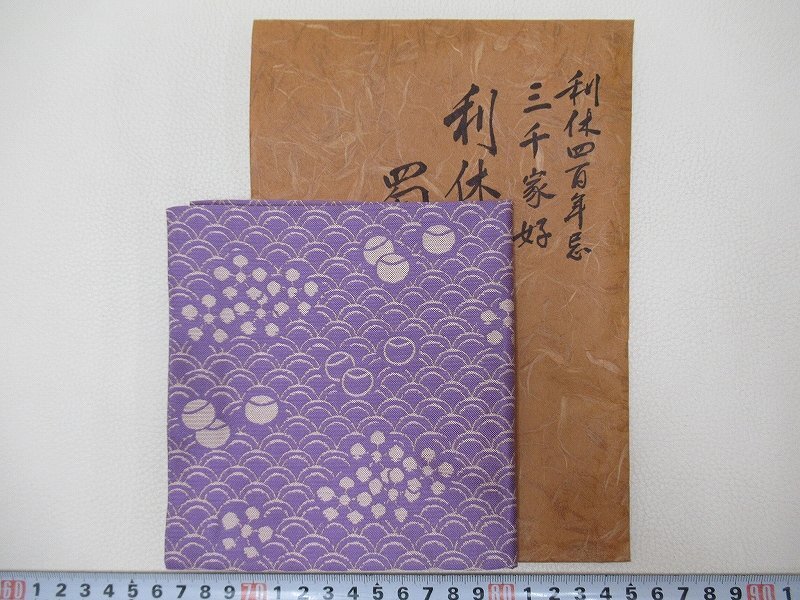 利休四百年忌
三千家好
利休
60 1 2 3 4 5 6 7 8 9 70 1 2 3 4 5 6 7 8 9 80 1 2 3 4 5 6 7 8 9 90 1